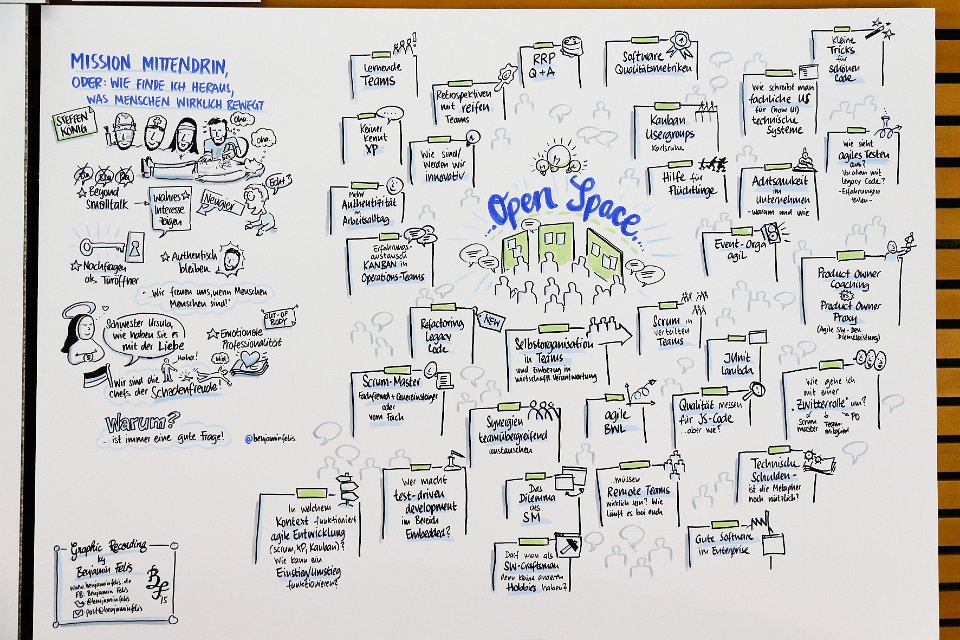 MISSION MITTENDRIN,
ODER: WIE FINDE ICH HERAUS,
WAS MENSCHEN WIRKLICH BEWEGT
STEFFEN
KÖNIG
Oha..
Oha..
Bla
Bla
Bla
Beyond
Smalltalk
wahres
Interesse
zeigen
Neugier
Echt?
Nachfragen
als Türöffner
Authentisch
bleiben
"..Wir freuen uns, wenn Menschen
Menschen sind!"
Schwester Ursula,
wie haben Sie es
mit der Liebe
OUT-OF
BODY
Emotionale
Professionalität
Haha!
Wir sind die
Chefs der Schadenfreude!
Warum?
... ist immer eine gute Frage!
@benjaminfelis
Graphic Recording
by
Benjamin Felis
www.benjaminfelis.de
FB: Benjamin Felis
@benjaminfelis
post@benjaminfelis
BF
15
Open Space
Lernende
Teams
Retrospektiven
mit reifen
Teams
RRP
Q+A
Software
Qualitätsmetriken
Kleine
Tricks
für
schönen
Code
Keiner
kennt
XP
Wie sind/
werden wir
innovativ
Kanban
Usergroups
Karlsruhe
Wie schreibt man
fachliche US
für (now UI)
technische
Systeme
Wie sieht
agiles Testen
aus?
Vor allem mit
Legacy Code?
-Erfahrung
teilen-
Mehr
Authentizität
im
Arbeitsalltag
Hilfe für
Flüchtlinge
Achtsamkeit
im
Unternehmen
-warum und wie
Erfahrungs-
austausch
KANBAN in
Operations-Teams
Event-Orga
agil
Product Owner
Coaching
vs
Product Owner
Proxy
(Agile SW-Dev
Dienstleistung)
Refactoring
Legacy
Code
NEW
Selbstorganisation
in Teams
und Einbezug in
wirtschaftl. Verantwortung
Scrum in
verteilten
Teams
JUnit
Lambda
Scrum-Master
Fachfremd + Quereinsteiger
oder
vom Fach
Synergien
teamübergreifend
austauschen
agile
BWL
Qualität messen
für JS-Code
..aber wie?
Wie gehe ich
mit einer
"Zwitterrolle" um?
Scrum
master
Team-
mitglied
PO
In welchem
Kontext funktioniert
agile Entwicklung
(Scrum, XP, Kanban)?
Wie kann ein
Einstieg/Umstieg
funktionieren?
Wer macht
test-driven
development
im Bereich
Embedded?
Das
Dilemma
des
SM
..müssen
Remote Teams
wirklich sein? Wie
läuft es bei euch
Technische
Schulden-
ist die Metapher
noch nützlich?
Darf man als
SW-Craftsman
denn keine anderen
Hobbies haben?
Gute Software
im Enterprise